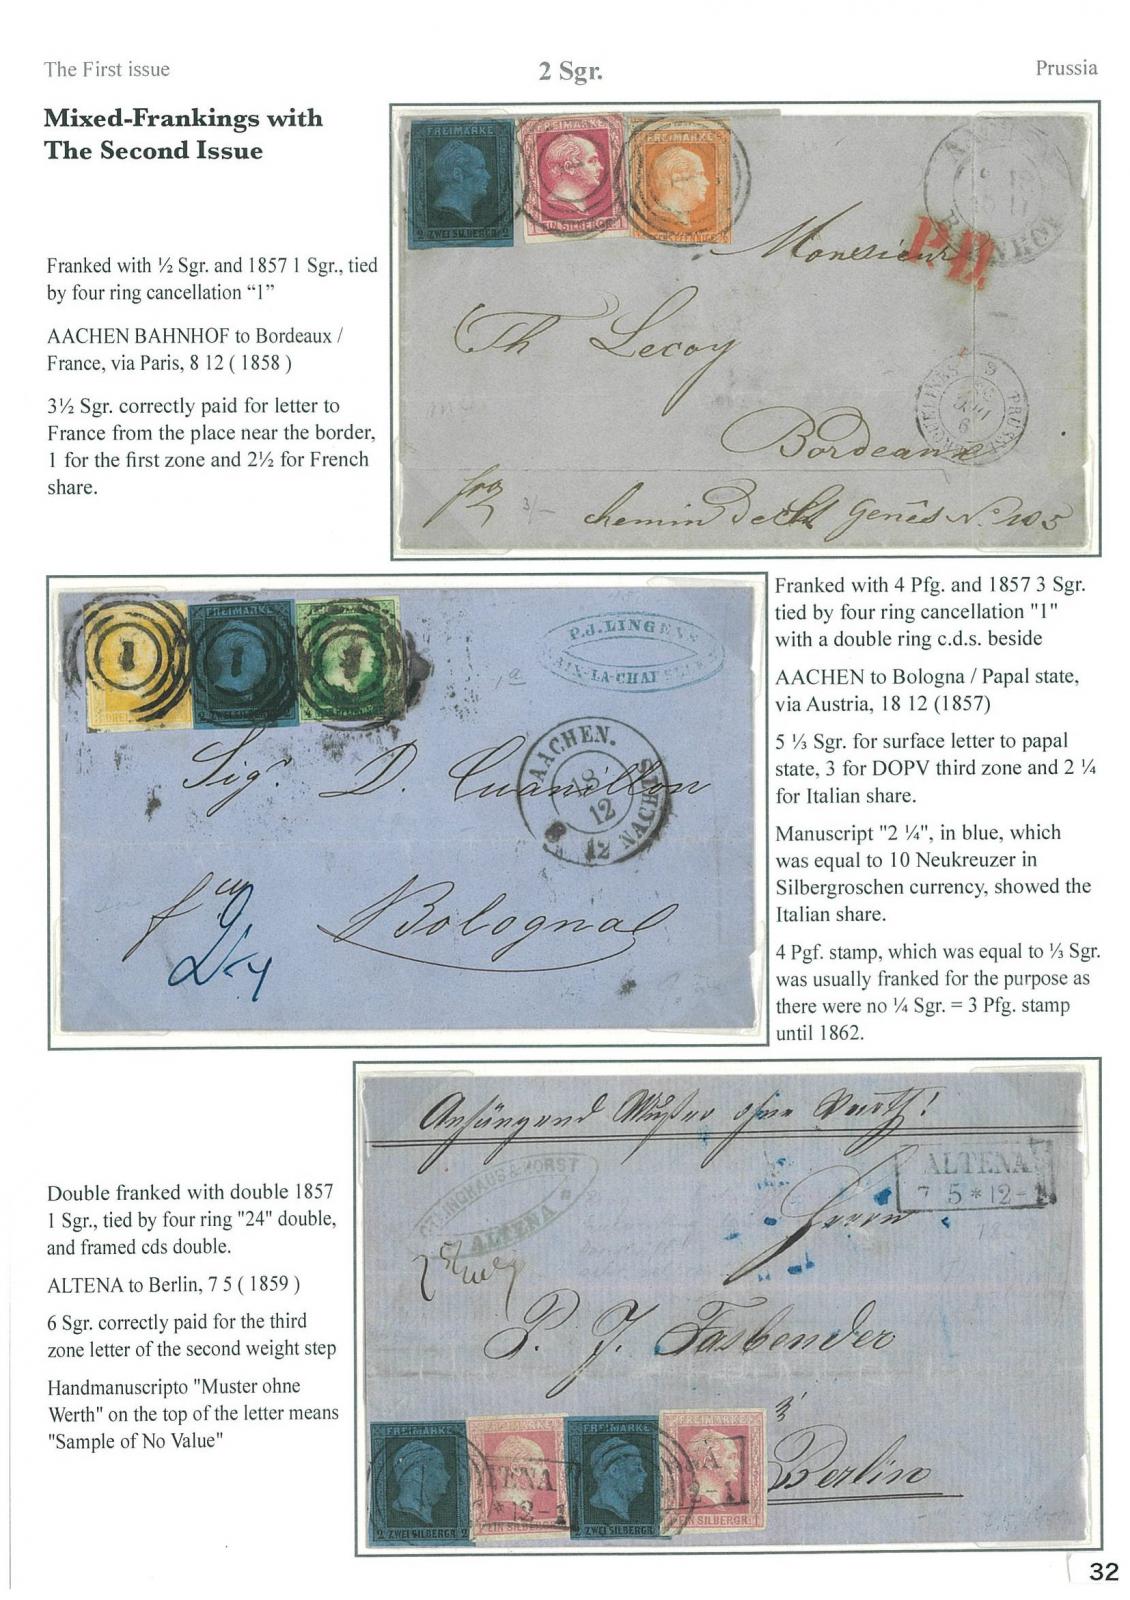 The First issue
2 Sgr.
Prussia
Mixed-Frankings with
The Second Issue
Franked with ½ Sgr. and 1857 1 Sgr., tied
by four ring cancellation “1”
AACHEN BAHNHOF to Bordeaux /
France, via Paris, 8 12 ( 1858 )
3½ Sgr. correctly paid for letter to
France from the place near the border,
1 for the first zone and 2½ for French
share.
FREIMARKE
FREIMARKE
FREIMARKE
2 ZWEI SILBERGR. 2
1 EIN SILBERGR. 1
P.D.
Monsieur
Th Lecoy
Bordeaux
PRUSSE
3/-
chemin de St Genès No 105
Franked with 4 Pfg. and 1857 3 Sgr.
tied by four ring cancellation "1"
with a double ring c.d.s. beside
AACHEN to Bologna / Papal state,
via Austria, 18 12 (1857)
5 ⅓ Sgr. for surface letter to papal
state, 3 for DOPV third zone and 2 ¼
for Italian share.
Manuscript "2 ¼", in blue, which
was equal to 10 Neukreuzer in
Silbergroschen currency, showed the
Italian share.
4 Pgf. stamp, which was equal to ⅓ Sgr.
was usually franked for the purpose as
there were no ¼ Sgr. = 3 Pfg. stamp
until 1862.
1
FREIMARKE
1
2 ZWEI SILBERGR. 2
P.J. LINGENS
AIX-LA-CHAPELLE
AACHEN.
18
12
NACHTS
Sig. D. Cuanillon
Bologna
2 1/4
Double franked with double 1857
1 Sgr., tied by four ring "24" double,
and framed cds double.
ALTENA to Berlin, 7 5 ( 1859 )
6 Sgr. correctly paid for the third
zone letter of the second weight step
Handmanuscripto "Muster ohne
Werth" on the top of the letter means
"Sample of No Value"
Anhängend Muster ohne Werth!
ALTENA
7 5 * 12-1
ALTENA
Herrn
P. J. Fasbender
Berlin
FREIMARKE
FREIMARKE
FREIMARKE
FREIMARKE
2 ZWEI SILBERGR. 2
1 EIN SILBERGR. 1
2 ZWEI SILBERGR. 2
1 EIN SILBERGR. 1
32